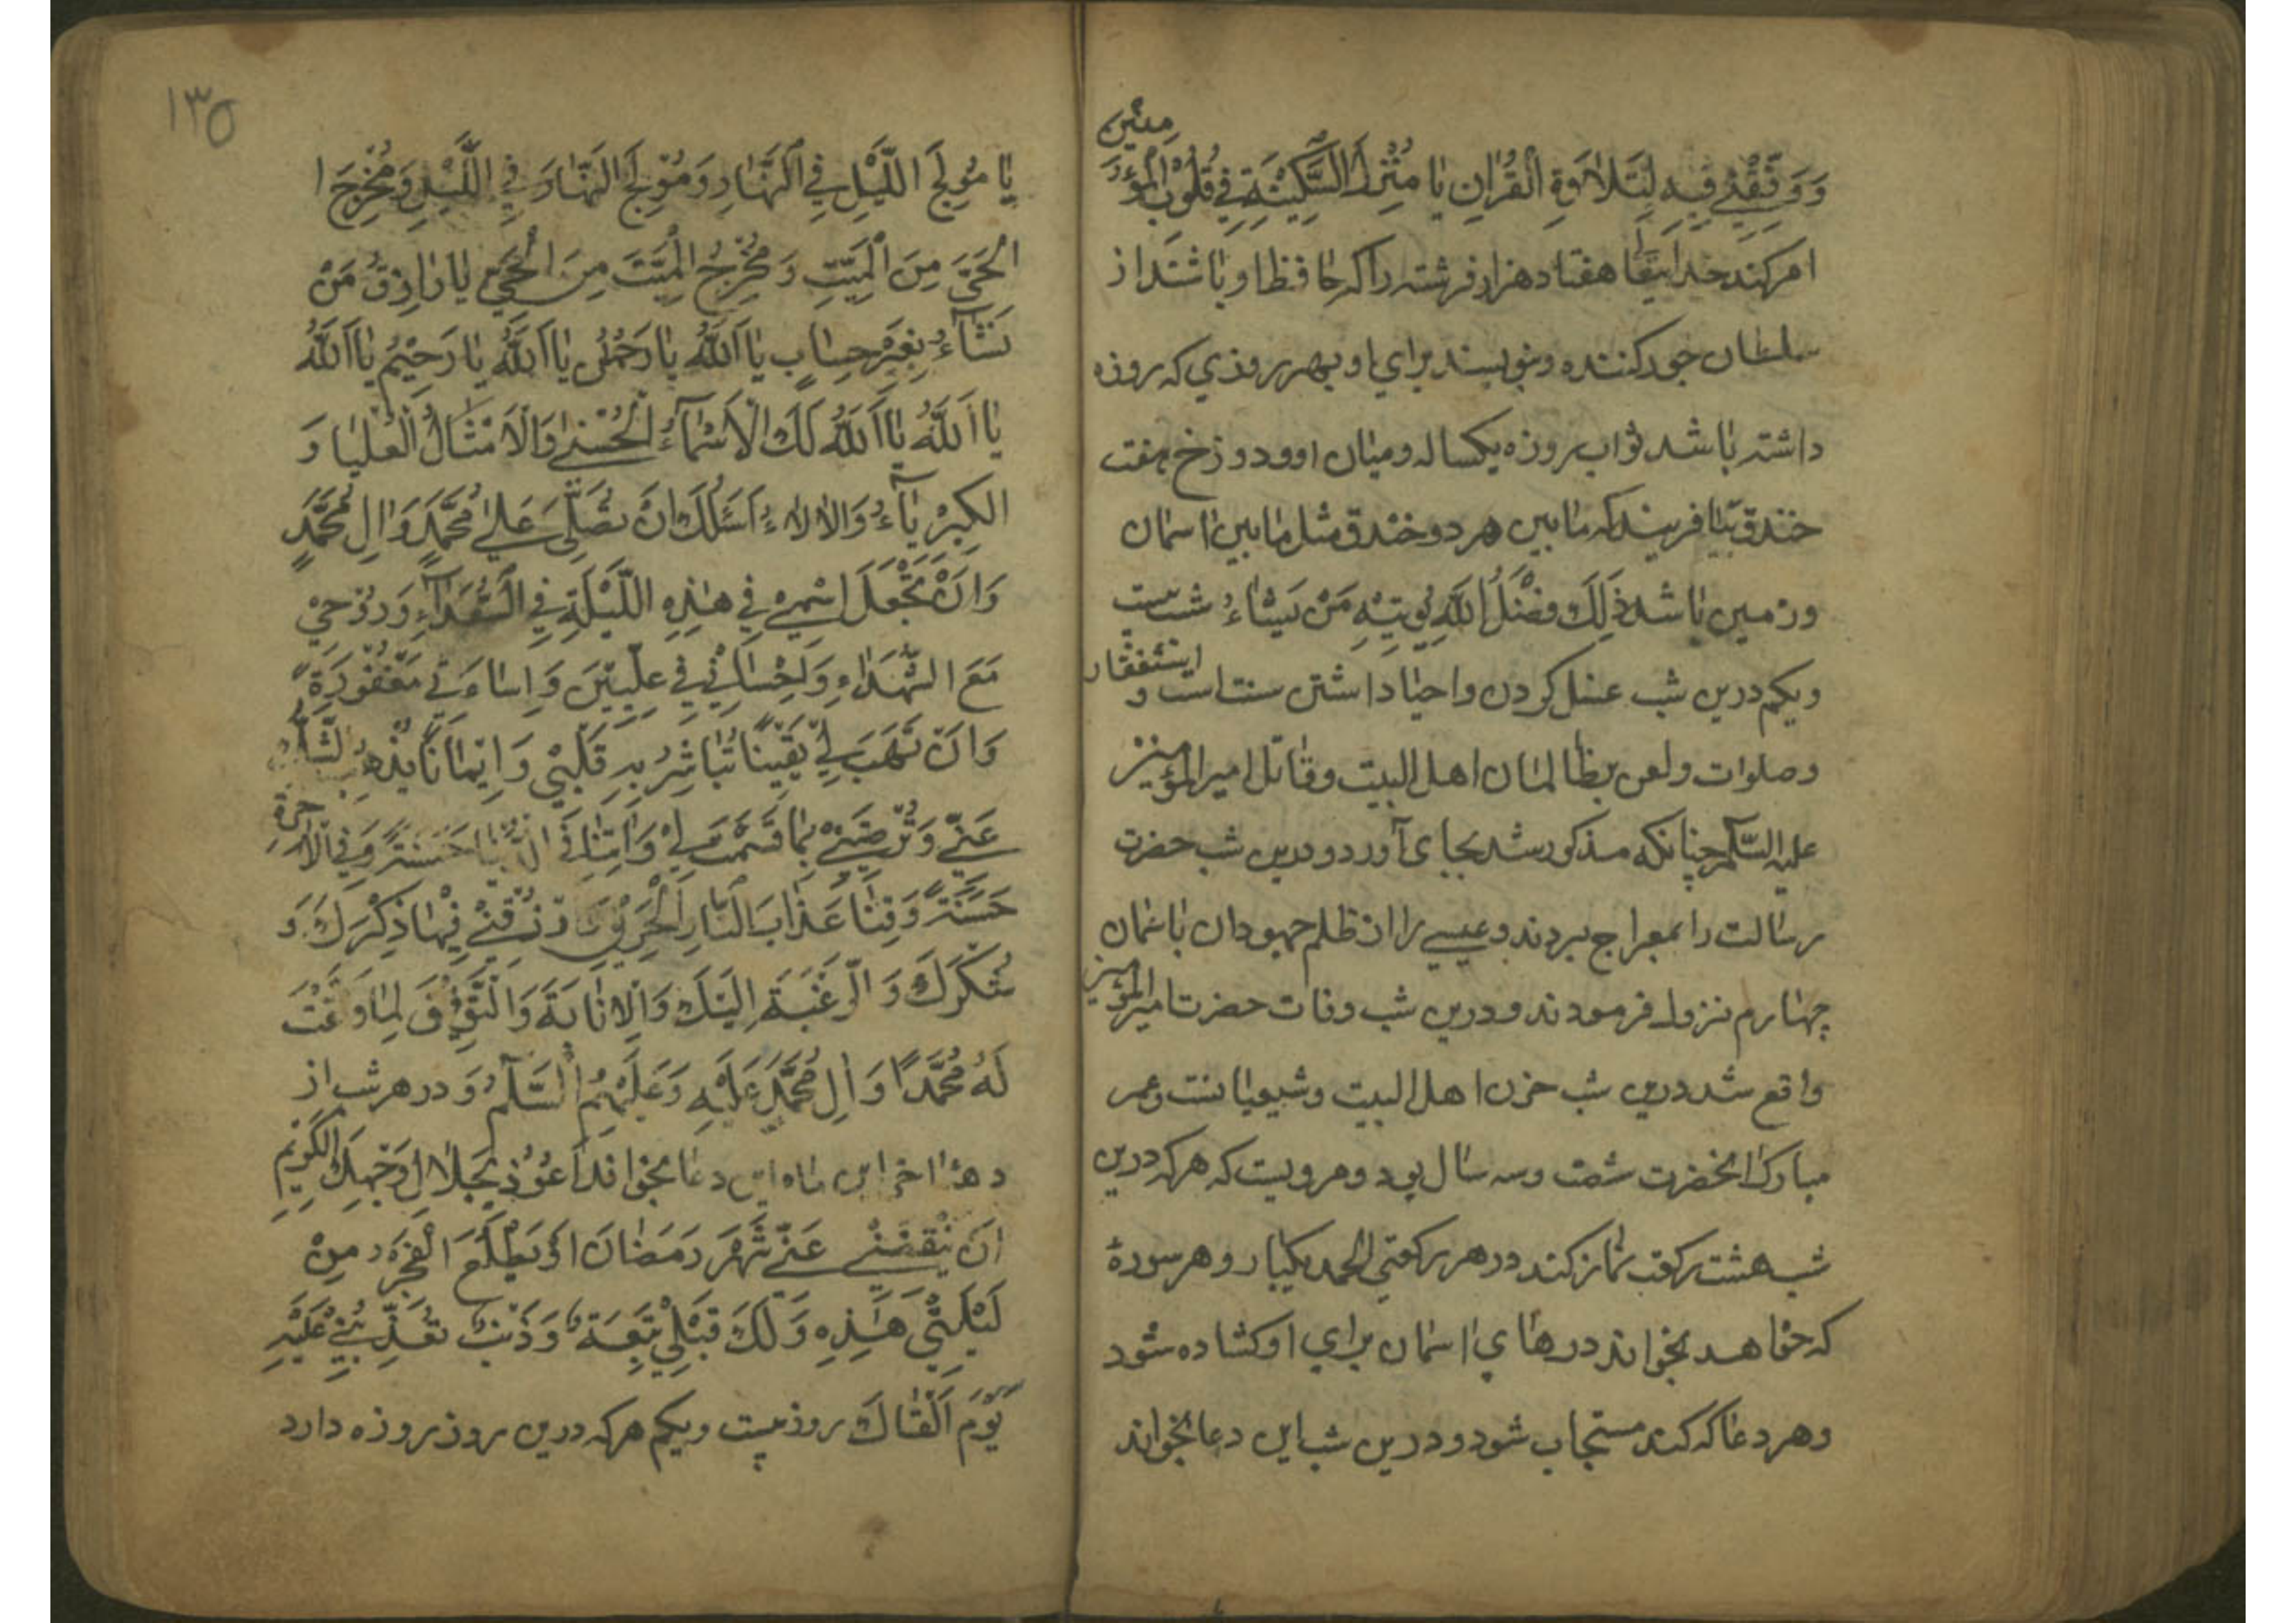 وَوَفِّقْنِي فِيهِ لِتَلاوَةِ الْقُرْانِ يَا مُنْزِلَ السَّكِينَةِ فِي قُلُوبِ الْمُؤْمِنِينَ
امر کند خدایتعا هفتاد هزار فرشته را که حافظ او باشند از
سلطان جود کننده و بنویسند برای او بهر روزی که روزه
داشته باشد ثواب روزه یکساله و میان او و دوزخ هفت
خندق بیافریند که مابین هر دو خندق مثل مابین اسمان
و زمین باشد ذَلِكَ فَضْلُ اللَّهِ يُؤتِيْهِ مَنْ يَشَاءُ شب بیست
ویکم درین شب غسل کردن و احیا داشتن سنت است و استغفار
و صلوات و لعن بظالمان اهل البیت و قاتل امیر المؤمنین
علیه السّلم چنانکه مذکور شد بجای آورد و درین شب حضرت
رسالت را بمعراج بردند و عیسی را از ظلم جهودان باسمان
چهارم نزول فرمودند و درین شب وفات حضرت امیر المؤمنین
واقع شد درین شب حزن اهل البیت و شیعیانست و عمر
مبارک انحضرت شصت و سه سال بود و مرویست که هر که درین
شب هشت رکعت نماز کند در هر رکعتی الحمد یکبار و هر سورهٔ
که خواهد بخواند درهای اسمان برای او کشاده شود
و هر دعا که کند مستجاب شود و درین شب این دعا بخواند
١٣٥
يَا مُولِجَ اللَّيْلِ فِي النَّهَارِ وَمُوْلِجَ النَّهَارِ فِي اللَّيْلِ وَمُخْرِجَ ا
الْحَيَّ مِنَ الْمَيِّتِ وَ مُخْرِجُ الْمَيِّتَ مِنَ الْحَيِّ يَا رَازِقُ مَنْ
نَشَآءُ بِغَيْرِ حِسَابٍ يَا اَللَّهُ يَا رَحْمٰنُ يَا اَللَّهُ يَا رَحِيْمُ يَا اَللَّهُ
يَا اَللَّهُ يَا اَللَّهُ لَكَ الْاَسْمَآءُ الْحُسْنٰى وَالْاَمْثَالُ الْعُلْيَا وَ
الْكِبْرِيَآءُ وَالْالَاءُ اَسْئَلُكَ اَنْ تُصَلِّيَ عَلىٰ مُحَمَّدٍ وَالِ مُحَمَّدٍ
وَاَنْ تَجْعَلَ اسْمِيْ فِي هٰذِهِ اللَّيْلَةِ فِي السُّعَدَآءِ وَ رُوْحِيْ
مَعَ الشُّهَدَاءِ وَاِحْسَانِيْ فِي عِلِّيّيْنَ وَ اِسَاءَتِي مَغْفُوْرَةً
وَ اَنْ تَهَبَ لِيْ يَقِيْنًا تُبَاشِرُ بِهِ قَلْبِيْ وَ اِيْمَانًا يُذْهِبُ الشَّكَّ
عَنّي وَ تُرْضِيَنِيْ بِمَا قَسَمْتَ لِيْ وَ اٰتِنَا فِي الدُّنْيَا حَسَنَةً وَ فِي الْاٰخِرَةِ
حَسَنَةً وَ قِنَا عَذَابَ النَّارِ الْحَرِيْقِ وَارْزُقْنِي فِيْهَا ذِكْرَكَ وَ
شُكْرَكَ وَ الرَّغْبَةَ اِلَيْكَ وَالْاِنَابَةَ وَ التَّوْفِيْقَ لِمَا وَفَّقْتَ
لَهُ مُحَمَّدًا وَ اٰلِ مُحَمَّدٍ عَلَيْهِ وَ عَلَيْهِمُ السَّلَمُ و در هر شب از
دههٔ اخر این ماه این دعا بخواند اَعُوْذُ بِجَلَالِ وَجْهِكَ الْكَرِيْمِ
اَنْ يَنْقَضِيَ عَنّي شَهْرُ رَمَضَانَ اَوْ يَطْلُعَ الْفَجْرُ مِنْ
لَيْلَتِيْ هَذِهِ وَ لَكَ قِبَلِيْ تَبِعَةٌ وَ ذَنْبٌ تُعَذِّبُنِي عَلَيْهِ
يَوْمَ اَلْقَاكَ روز بیست و یکم هر که درین روز روزه دارد